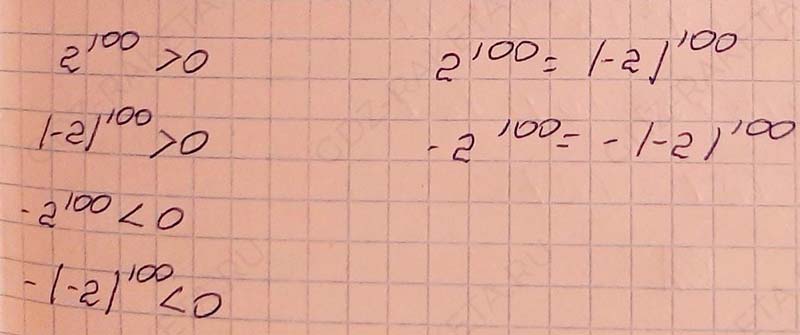 2^100 > 0
(-2)^100 > 0
-2^100 < 0
-(-2)^100 < 0
2^100 = (-2)^100
-2^100 = -(-2)^100